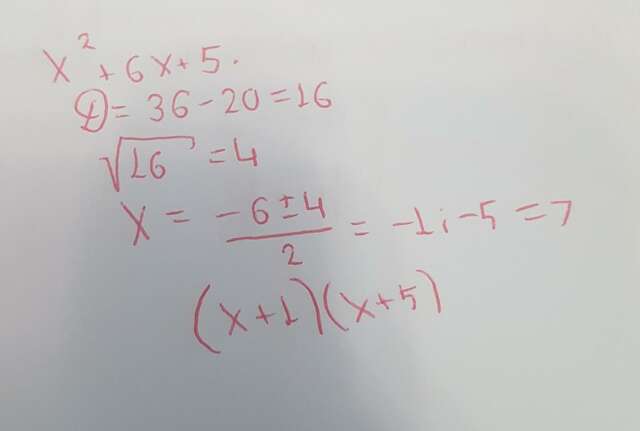 x² + 6x + 5.
D = 36 - 20 = 16
√16 = 4
x = (-6 ± 4)/2 = -1; -5 =>
(x+1)(x+5)